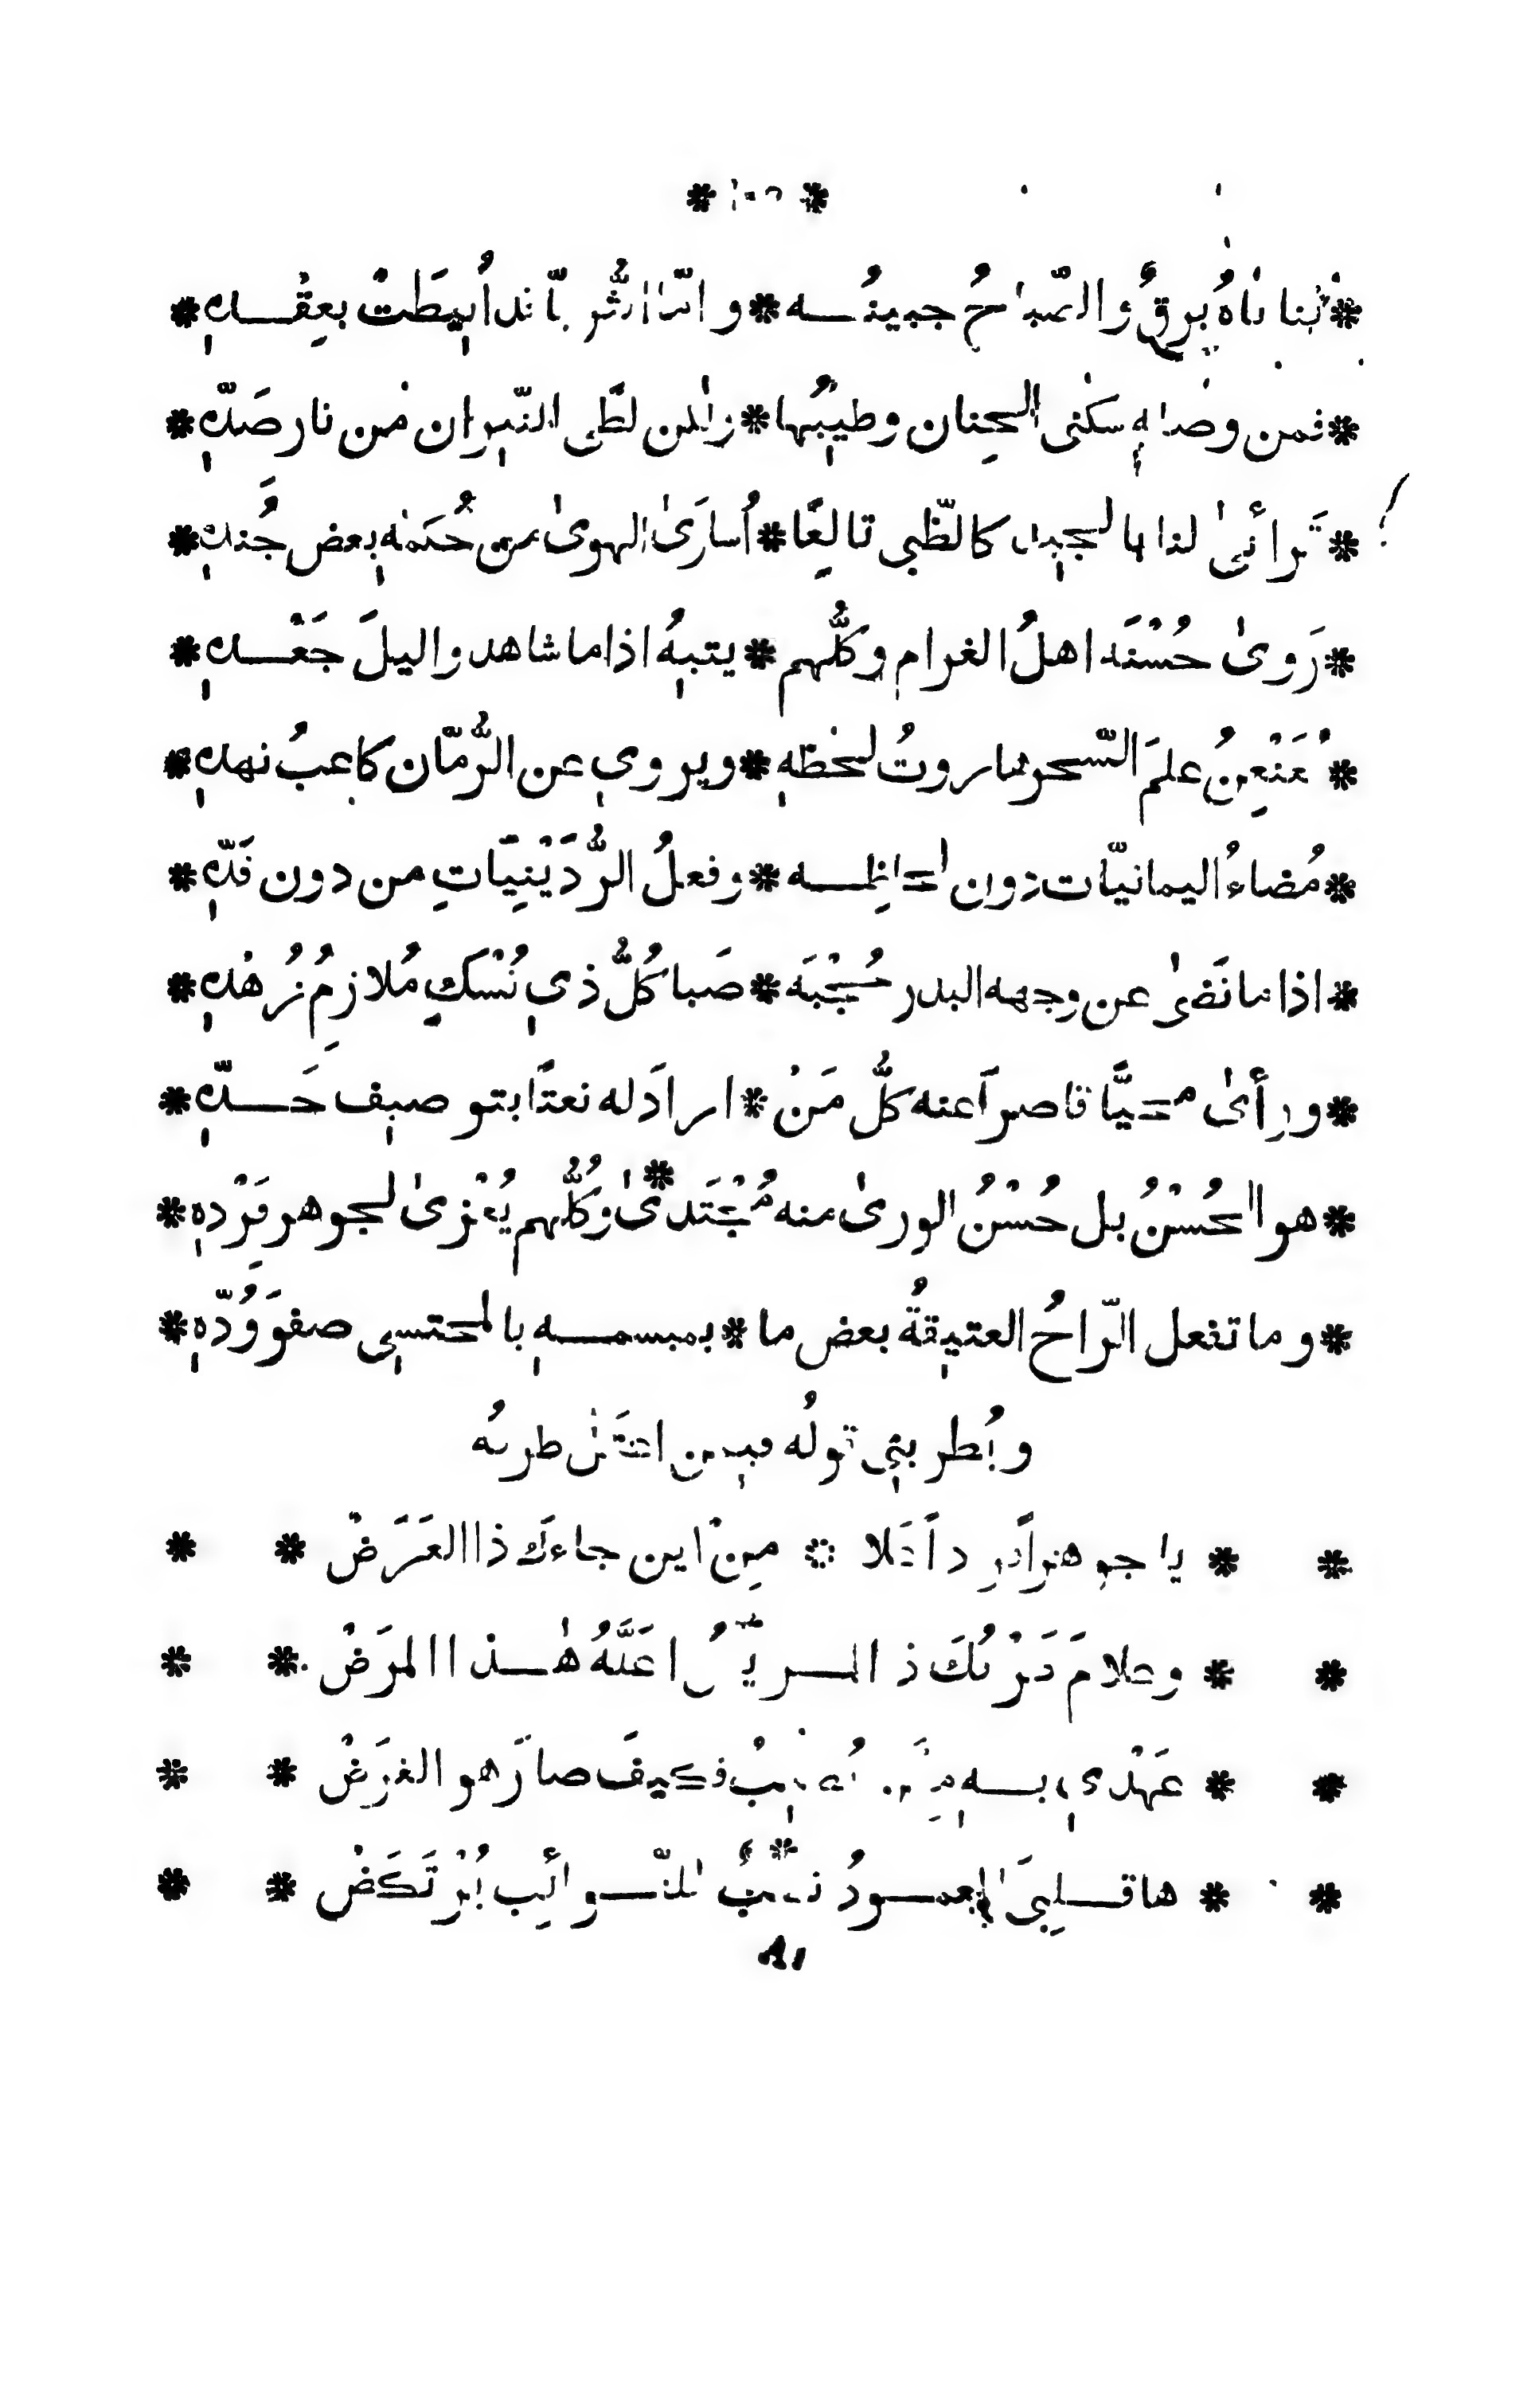 * ثناياهُ برقٌ والصّباحُ جبينُـه * وامّا الثُّريّا قد أُميطَتْ بعِقْـدهِ *
* فمن وصلهِ سكنى الجِنان وطيبُها * ولكن لظًى النّيران من نار صَدّهِ *
* تَرائىٰ لنا بالجيد كالظّبي تالعًا * أُسارَىٰ الهوىٰ من حُكمهِ بعض جُندهِ *
* رَوىٰ حُسْنَه اهلُ الغرام وكلُّهم * يتيهُ اذا ما شاهدوا ليلَ جَعْـدهِ *
* يُعَنْعِنُ علمَ السّحر هاروتُ لحظهِ * ويروي عن الرُّمّان كاعبُ نهدهِ *
* مُضاءُ اليمانيّات دون لحاظِـه * وفعلُ الرُّدَيْنِيّاتِ من دون قَدّهِ *
* اذا ما نَضىٰ عن وجهه البدر حُجْبَه * صَبا كُلُّ ذي نُسْكٍ مُلازِمُ زُهْدهِ *
* ورأىٰ محيًّا قاصرًا عنه كلُّ مَنْ * ارادَ له نعتًا بتوصيف خَـدّهِ *
* هو الحُسْنُ بل حُسْنُ الورىٰ منه مُجْتَدىً * وكُلُّهم يُعْزىٰ لجوهر فَرْدهِ *
* وما تفعل الرّاحُ العتيقةُ بعض ما * بمبسمـهِ بالمحتسي صفوَ وُدّهِ *
ويُطربني قولُه فيمن اعتَلّ طرفُه
* * يا جوهرًا فردًا عَلا * مِنْ اين جاءَكَ ذا العَرَضْ * *
* * وعلامَ طَرْفُكَ ذا المـريضُ اعَلَّهُ هٰـذا المرَضْ * *
* * عَهْدي بـه فكيفَ صارَ هو الغرَضْ * *
* * ها قـلبيَ المعمـودُ نُصْبٌ للنّـوائِب يُرْتَكَضْ * *